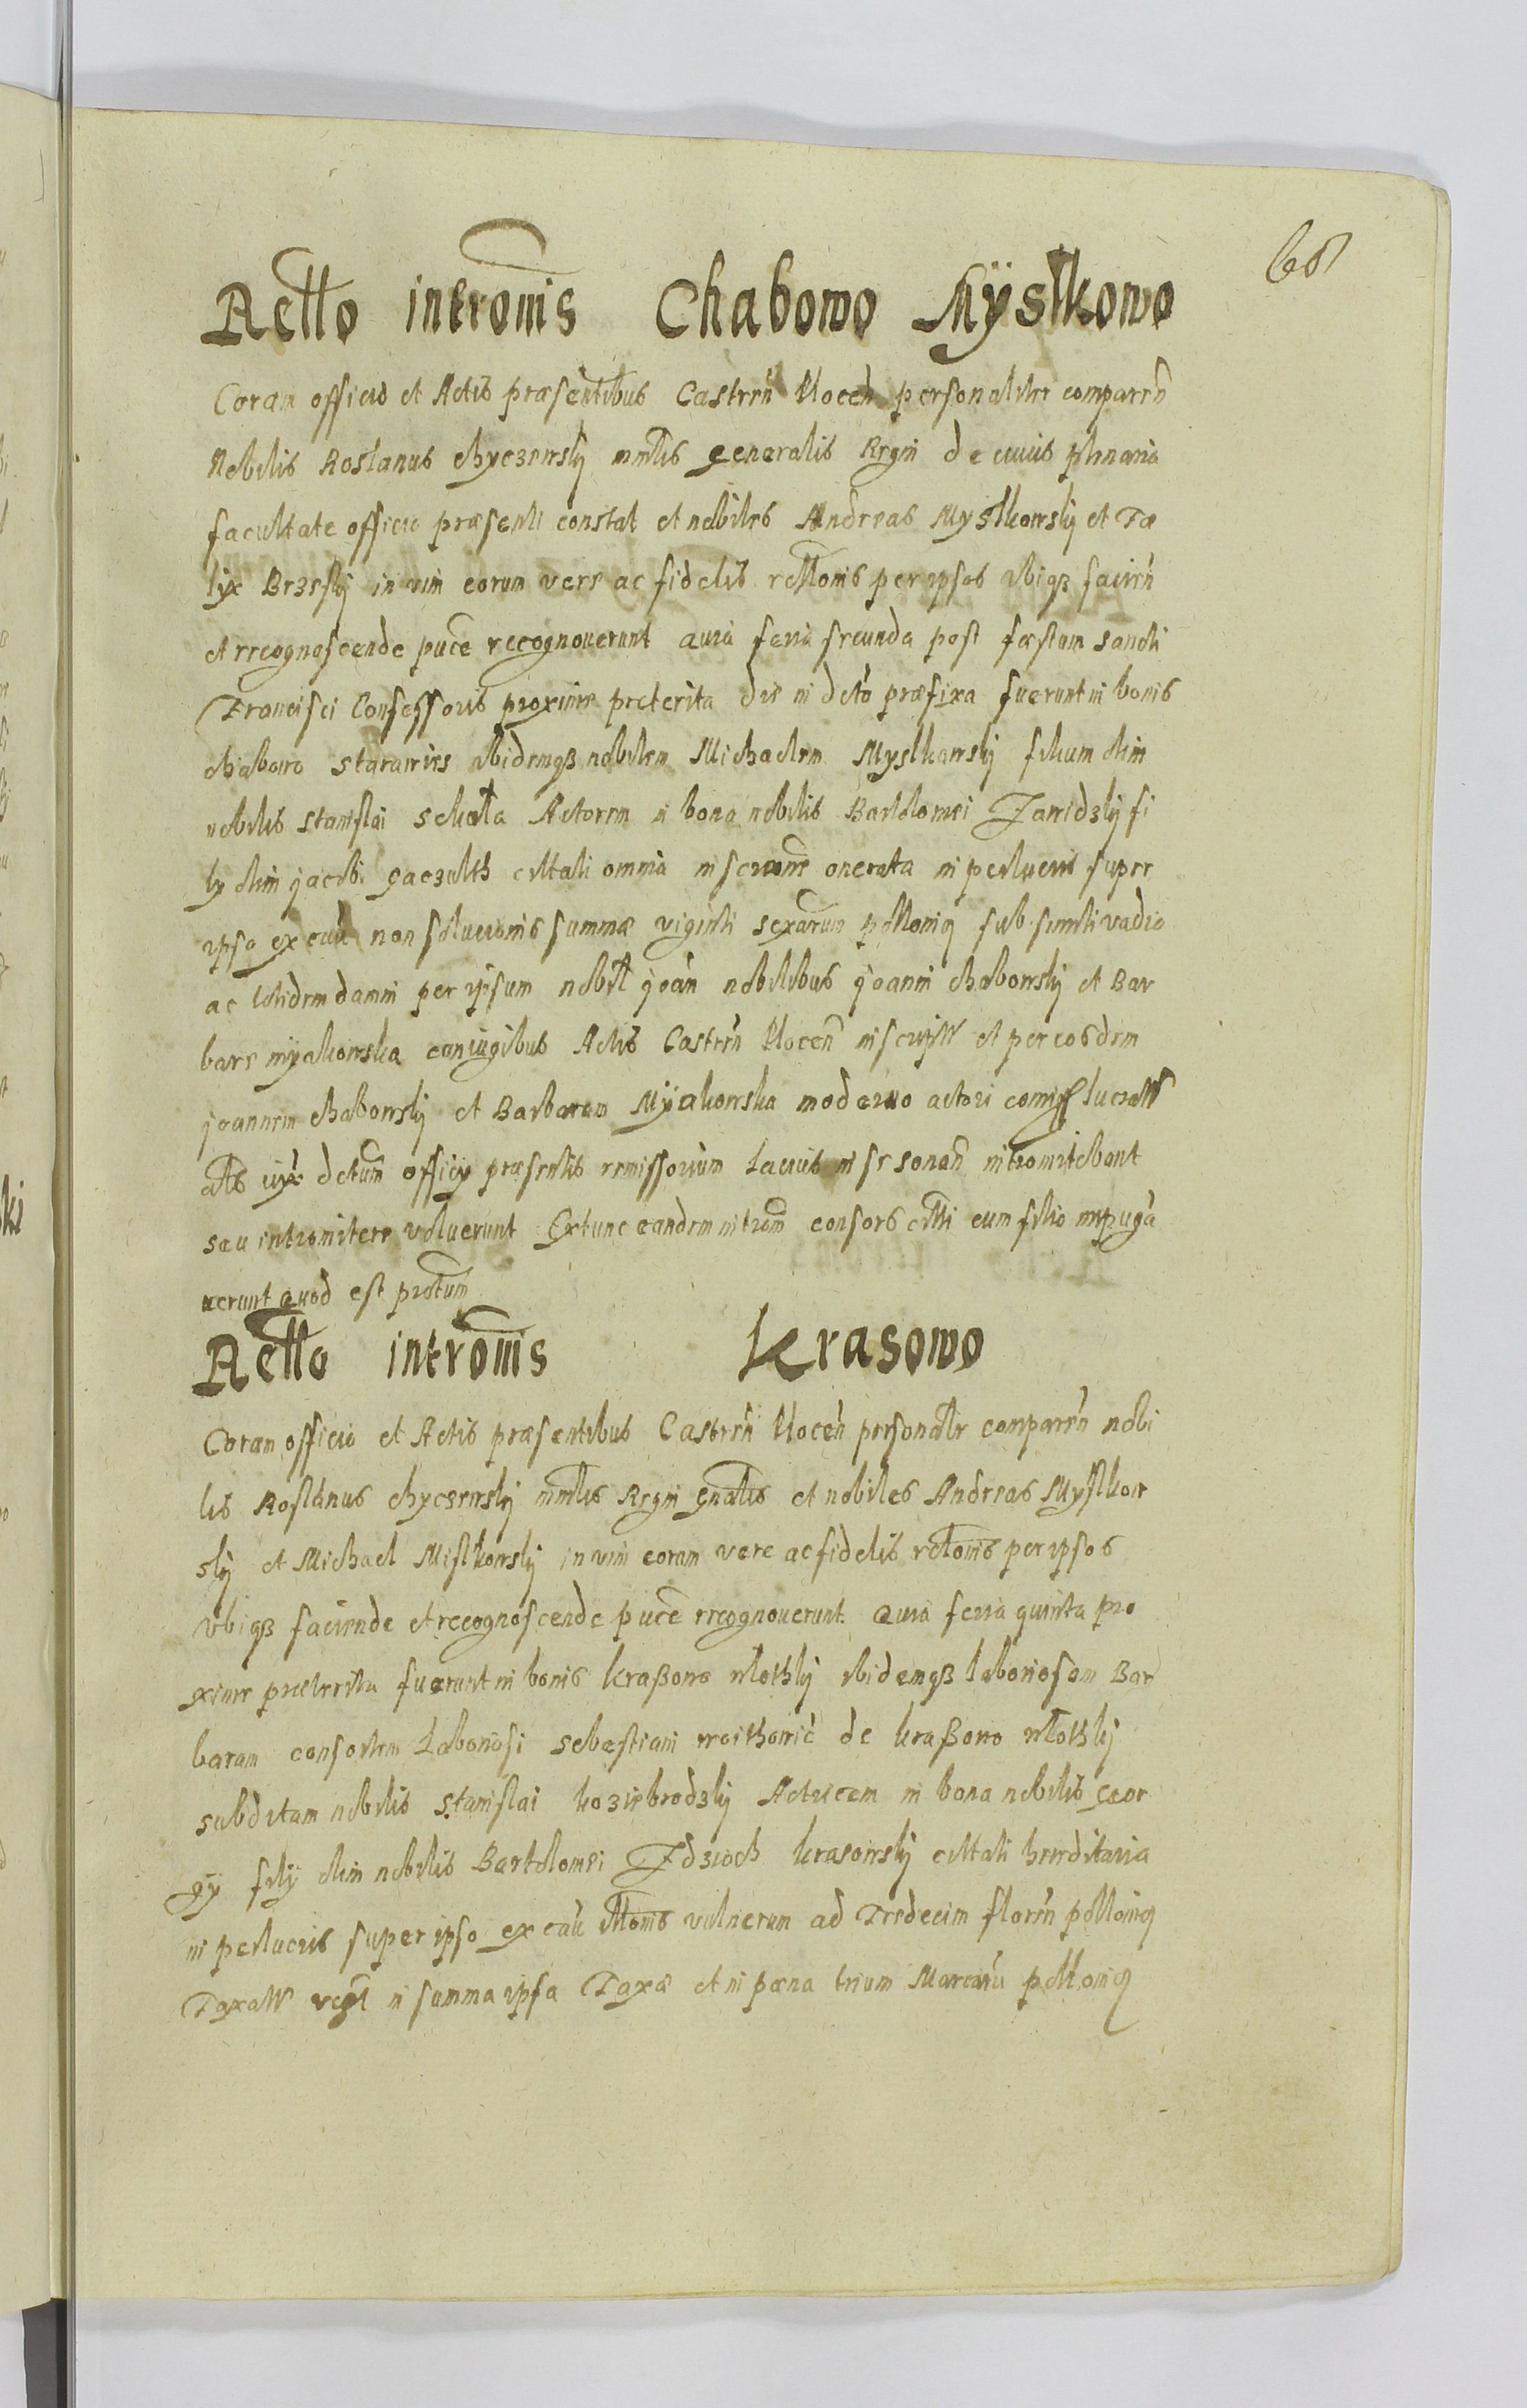 68
Rello introm̄s Chabowo Mÿstkowo
Coram officio et Actis præsentibus Castren̄ Plocen̄ personaliter comparen̄
Nobilis Roslanus chyczewskÿ mn̄lis generalis Regni de cuius plenaria
facultate officio præsenti constat et nobiles Andreas Mystkowskÿ et Fæ
lix Brzeskÿ in vim eorum vere ac fidelis rellonis per ipsos vbiqȝ facien̄
et recognoscende puce recognouerunt Quia feria secunda post fæstum sancti
Francisci Confessoris proxime preterita die in dcto præfixa fuerunt in bonis
chabowo starawies ibidemqȝ nobilem Michaelem Mystkowskÿ filium olim
nobilis Stanislai Actorem in bona nobilis Bartolomei Zawidzkÿ fi
ly olim jacobi gaczulth citati omnia inscripne onerata in perlucris super
ipso ex cau non solucionis summæ viginti sexarum pollonicq sub simili vadio
ac totidem damni per ipsum nobil joan nobilibus joanni chabowskÿ et Bar
bare myakowska coniugibus Actis Castren̄ Plocen̄ inscript et per eosdem
joannem chabowskÿ et Barbaram Mÿakowska moderno actori comiss lucratt
officÿ præsentis remissorium Lacius in se sonan̄ intromitebant
sæu intromitere voluerunt Extunc eandem introm̄ consors citti cum filio impugna
uerunt Quod est protum̄
Rello introm̄s Krasowo
Coram officio et Actis præsentibus Castren̄ Plocen̄ personalr comparen̄ nobi
lis Roslanus chyczewskÿ mn̄lis Regni gn̄alis et nobiles Andreas Mystkow
skÿ et Michael Mistkowskÿ in vim eorum vere ac fidelis rellonis per ipsos
vbiqȝ faciende et recognoscende puce recognouerunt Quia feria quinta pro
xime præterita fuerunt in bonis kraßowo wlothkÿ ibidemqȝ laboriosam Bar
baram consortem Laboriosi sebæstiani woithowic de kraßowo wlothkÿ
subditam nobilis Stanislai koziebrodzkÿ Actricem in bona nobilis Geor
gÿ filÿ olim nobilis Bartolomei Idzioch krasowskÿ citati hereditaria
in perlucris super ipso ex cau illonis vulnerum ad Tredecim floren̄ pollonicq
Taxatt in summa ipsa Taxæ et in pæna trium Marcaru pollonicq